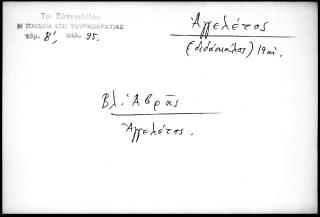 Τρ. Εὐαγγελίδου
Η ΠΑΙΔΕΙΑ ΕΠΙ ΤΟΥΡΚΟΚΡΑΤΙΑΣ
τόμ. Β', σελ. 95.
Ἀγγελέτος
(διδάσκαλος) 19 αἰ.
Βλ. Ἀβρᾶς
Ἀγγελέτος.